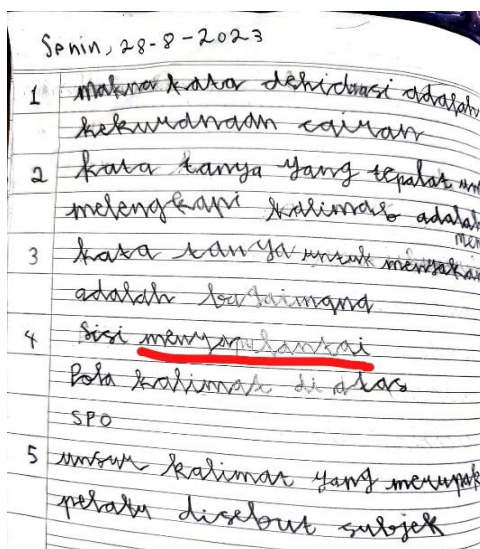 Senin, 28-8-2023
1 makna kata dehidrasi adalah
kekurdnadn cairan
2 kata tanya yang tepat
melengkapi kalimat adalah
3 kata tanya untuk
adalah bagaimana
4 Sisi menyapu lantai
Pola kalimat di atas
SPO
5 unsur kalimat yang merupak
pelaku disebut subjek